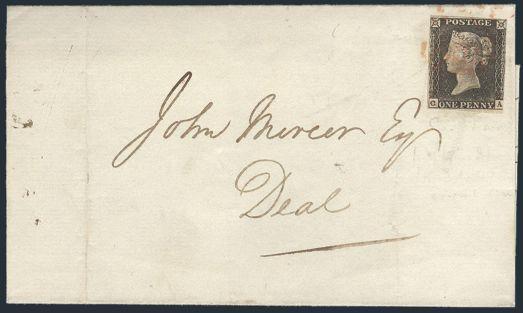 POSTAGE
ONE PENNY
John Mercer Esq
Deal